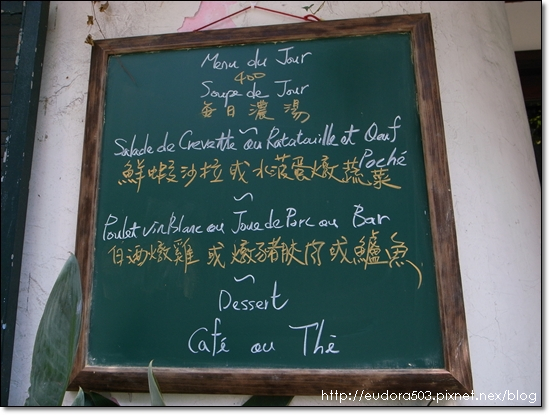 Menu du Jour
400
Soupe de Jour
每日濃湯
Salade de Crevette ou Ratataille et Oeuf
Poché
鮮蝦沙拉或水菠蛋燉蔬菜
Poulet Vin Blanc ou Joue de Porc ou Bar
白酒燉雞 或 燉豬肤肉或鱸魚
Dessert
Café ou Thè
http://eudora503.pixnet.nex/blog